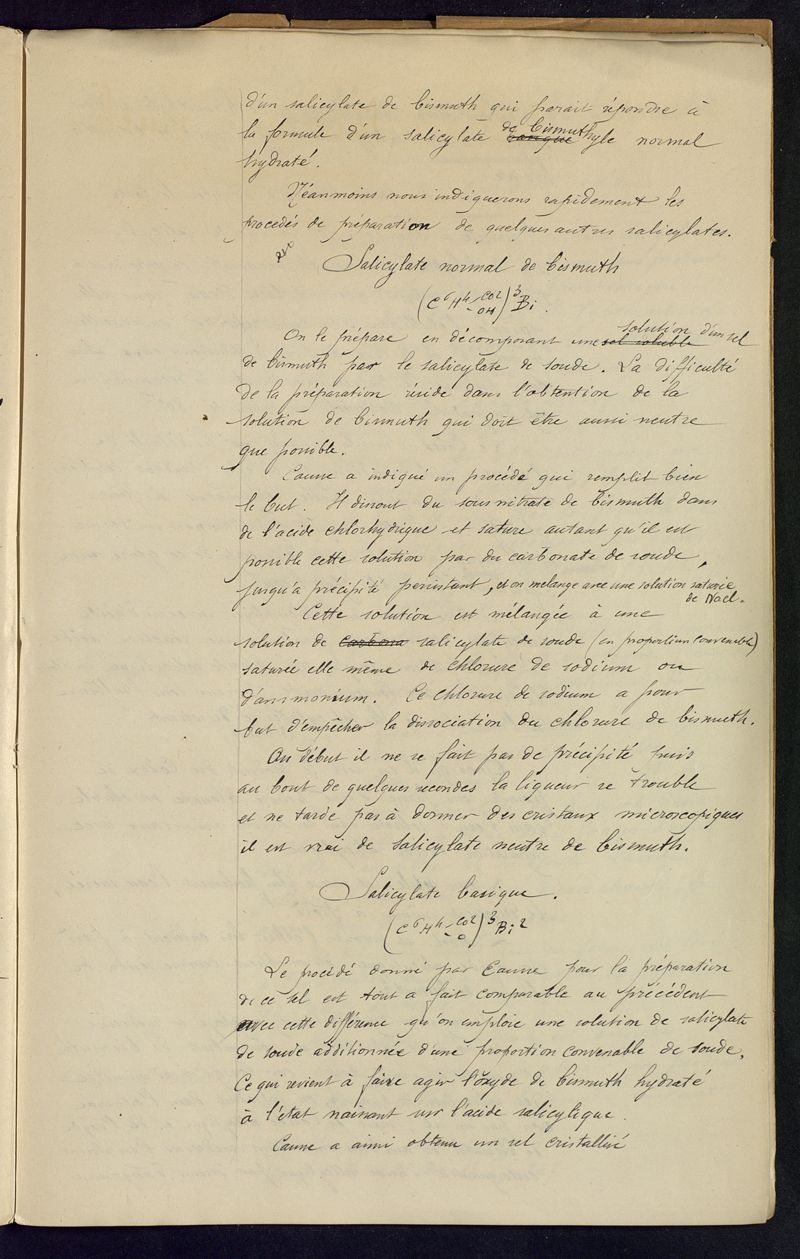 d'un salicylate de bismuth qui parait répondre à
la formule d'un salicylate de bismuthyle normal
hydraté.
Néanmoins nous indiquerons rapidement les
procédés de préparation de quelques autres salicylates.
Salicylate normal de bismuth
(C⁶H⁴-CO²-OH)³Bi.
On le prépare en décomposant une sel soluble solution d'un sel
de bismuth par le salicylate de soude. La difficulté
de la préparation réside dans l'obtention de la
solution de bismuth qui doit être aussi neutre
que possible.
Causse a indiqué un procédé qui remplit bien
le but. Il dissout du sous nitrate de bismuth dans
de l'acide chlorhydrique et sature autant qu'il est
possible cette solution par du carbonate de soude,
jusqu'à précipité persistant, et on mélange avec une solution saturée
de NaCl.
Cette solution est mélangée à une
solution de carbona salicylate de soude (en proportion convenable)
saturée elle même de chlorure de sodium ou
d'ammonium. Ce chlorure de sodium a pour
but d'empêcher la dissociation du chlorure de bismuth.
Au début il ne se fait pas de précipité puis
au bout de quelques secondes la liqueur se trouble
et ne tarde pas à donner des cristaux microscopiques
il est vrai de salicylate neutre de bismuth.
Salicylate basique.
(C⁶H⁴-CO²-O)³Bi²
Le procédé donné par Causse pour la préparation
de ce sel est tout a fait comparable au précédent
avec cette différence qu'on emploie une solution de salicylate
de soude additionnée d'une proportion convenable de soude.
Ce qui revient à faire agir l'oxyde de bismuth hydraté
à l'état naissant sur l'acide salicylique.
Causse a ainsi obtenu un sel cristallisé